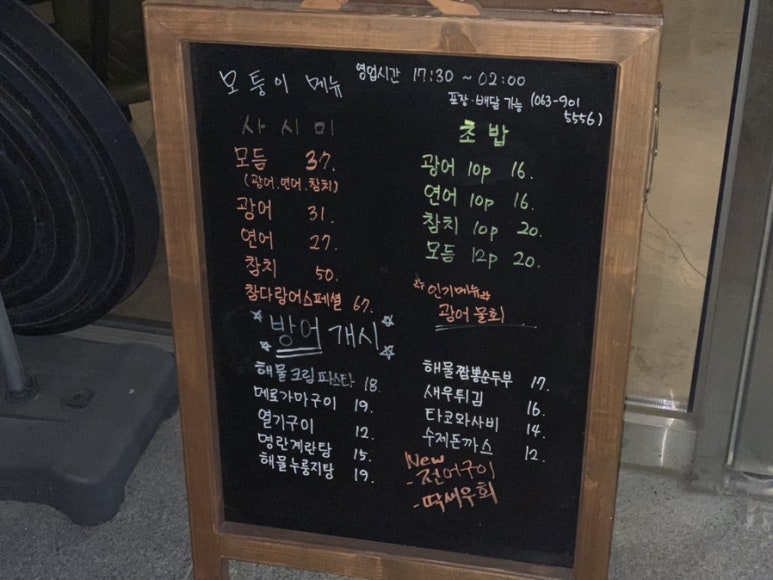 모퉁이 메뉴 영업시간 17:30 ~ 02:00
포장·배달 가능 (063-901
5556)
사시미
모듬 37.
(광어.연어.참치)
광어 31.
연어 27.
참치 50.
참다랑어스페셜 67.
초밥
광어 10p 16.
연어 10p 16.
참치 10p 20.
모듬 12p 20.
인기메뉴
광어 물회
방어 개시
해물크림파스타 18.
메로가마구이 19.
열기구이 12.
명란계란탕 15.
해물누룽지탕 19.
해물짬뽕순두부 17.
새우튀김 16.
타코와사비 14.
수제돈까스 12.
New
-전어구이
-딱새우회